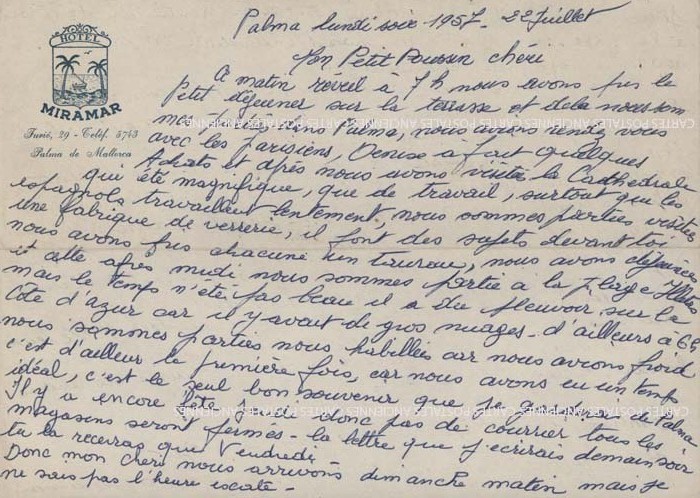 Palma lundi soir 1957. 22 Juillet
HOTEL
MIRAMAR
Furió, 29 - Teléf. 3743
Palma de Mallorca
Mon Petit Poussin chéri
Ce matin réveil à 7h nous avons pris le
Petit déjeuner sur la terrasse et de là nous som
mes dans Palma, nous avions rendez vous
avec les parisiens, Denise à fait quelques
Achats et après nous avons visité la Cathédrale
qui été magnifique, que de travail, surtout que les
espagnols travaillent lentement, nous sommes parties visiter
une fabrique de verrerie, il font des sujets devant toi
nous avons pris chacune un, nous avons déjeunés
et cette après midi nous sommes partie a la plage
mais le temps n'été pas beau il a du pleuvoir sur la
Côte d'azur car il y avait de gros nuages - d'ailleurs à 6h
nous sommes parties nous habillées car nous avions froid
c'est d'ailleur la première fois, car nous avons eu un temps
idéal, c'est le seul bon souvenir que je garderai de Palma
Il y a encore fête, donc pas de courrier tous les
magasins seront fermés - la lettre que j'écrirais demain soir
tu la recevras que Vendredi -
Donc mon chéri nous arrivons dimanche matin mais je
ne sais pas l'heure exacte -
CARTES POSTALES ANCIENNES